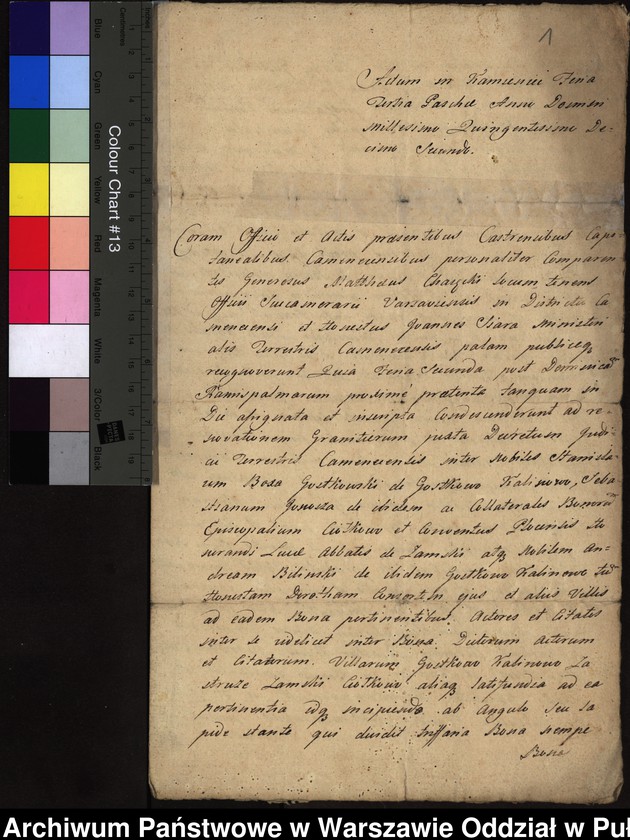 1
Actum in Kamieniei Feria
Tertia Paschæ Anno Domini
Millesimo Quingentesimo De-
cimo Secundo.
Coram Officio et Actis præsentibus Castrensibus Capi-
tanealibus Camenecensibus personaliter Comparen
tes Generosus Matthæus locum tenens
Officii Succamerarii Varsaviensis in Districtu Ca
menecensi et Honestus Joannes Siara Ministeri
alis Terrestris Camenecensis palam publiceq
recognoverunt Quia Feria Secunda post Dominicā
Ramispalmarum proxime præterita tanquam in
Die affigurata et inscripta Condescenderunt ad re-
novationem Granitierum juxta Decretum Judi-
cii Terrestris Camenecensis inter Nobiles Stanisla-
um Beza Gostkowski de Gostkowo Kalinowo, Seba-
stianum de ibidem ac Collaterales Bonorū
Episcopalium Ciołkowo et Conventus Plocensis Ho
norandi Abbatis de Zamski atq Nobilem An-
dream Bilinski de ibidem Gostkowo Kalinowo
Honestam Dorotham Consortem ejus et aliis Villis
ad eadem Bona pertinentibus. Actores et Citatos
inter se videlicet inter Bona Dictorum Actorum
et Citatorum. Villarum Gostkowo Kalinowo Za
struze Zamski Ciołkowo aliaq latifundia ad ea
pertinentia idq incipiendo ab Angulo seu la
pide stante qui dividit Bona nempe
Bona
Colour Chart #13
Blue
Cyan
Green
Yellow
Red
Magenta
White
3/Color
Black
Centimetres
Inches
Archiwum Państwowe w Warszawie Oddział w Puł